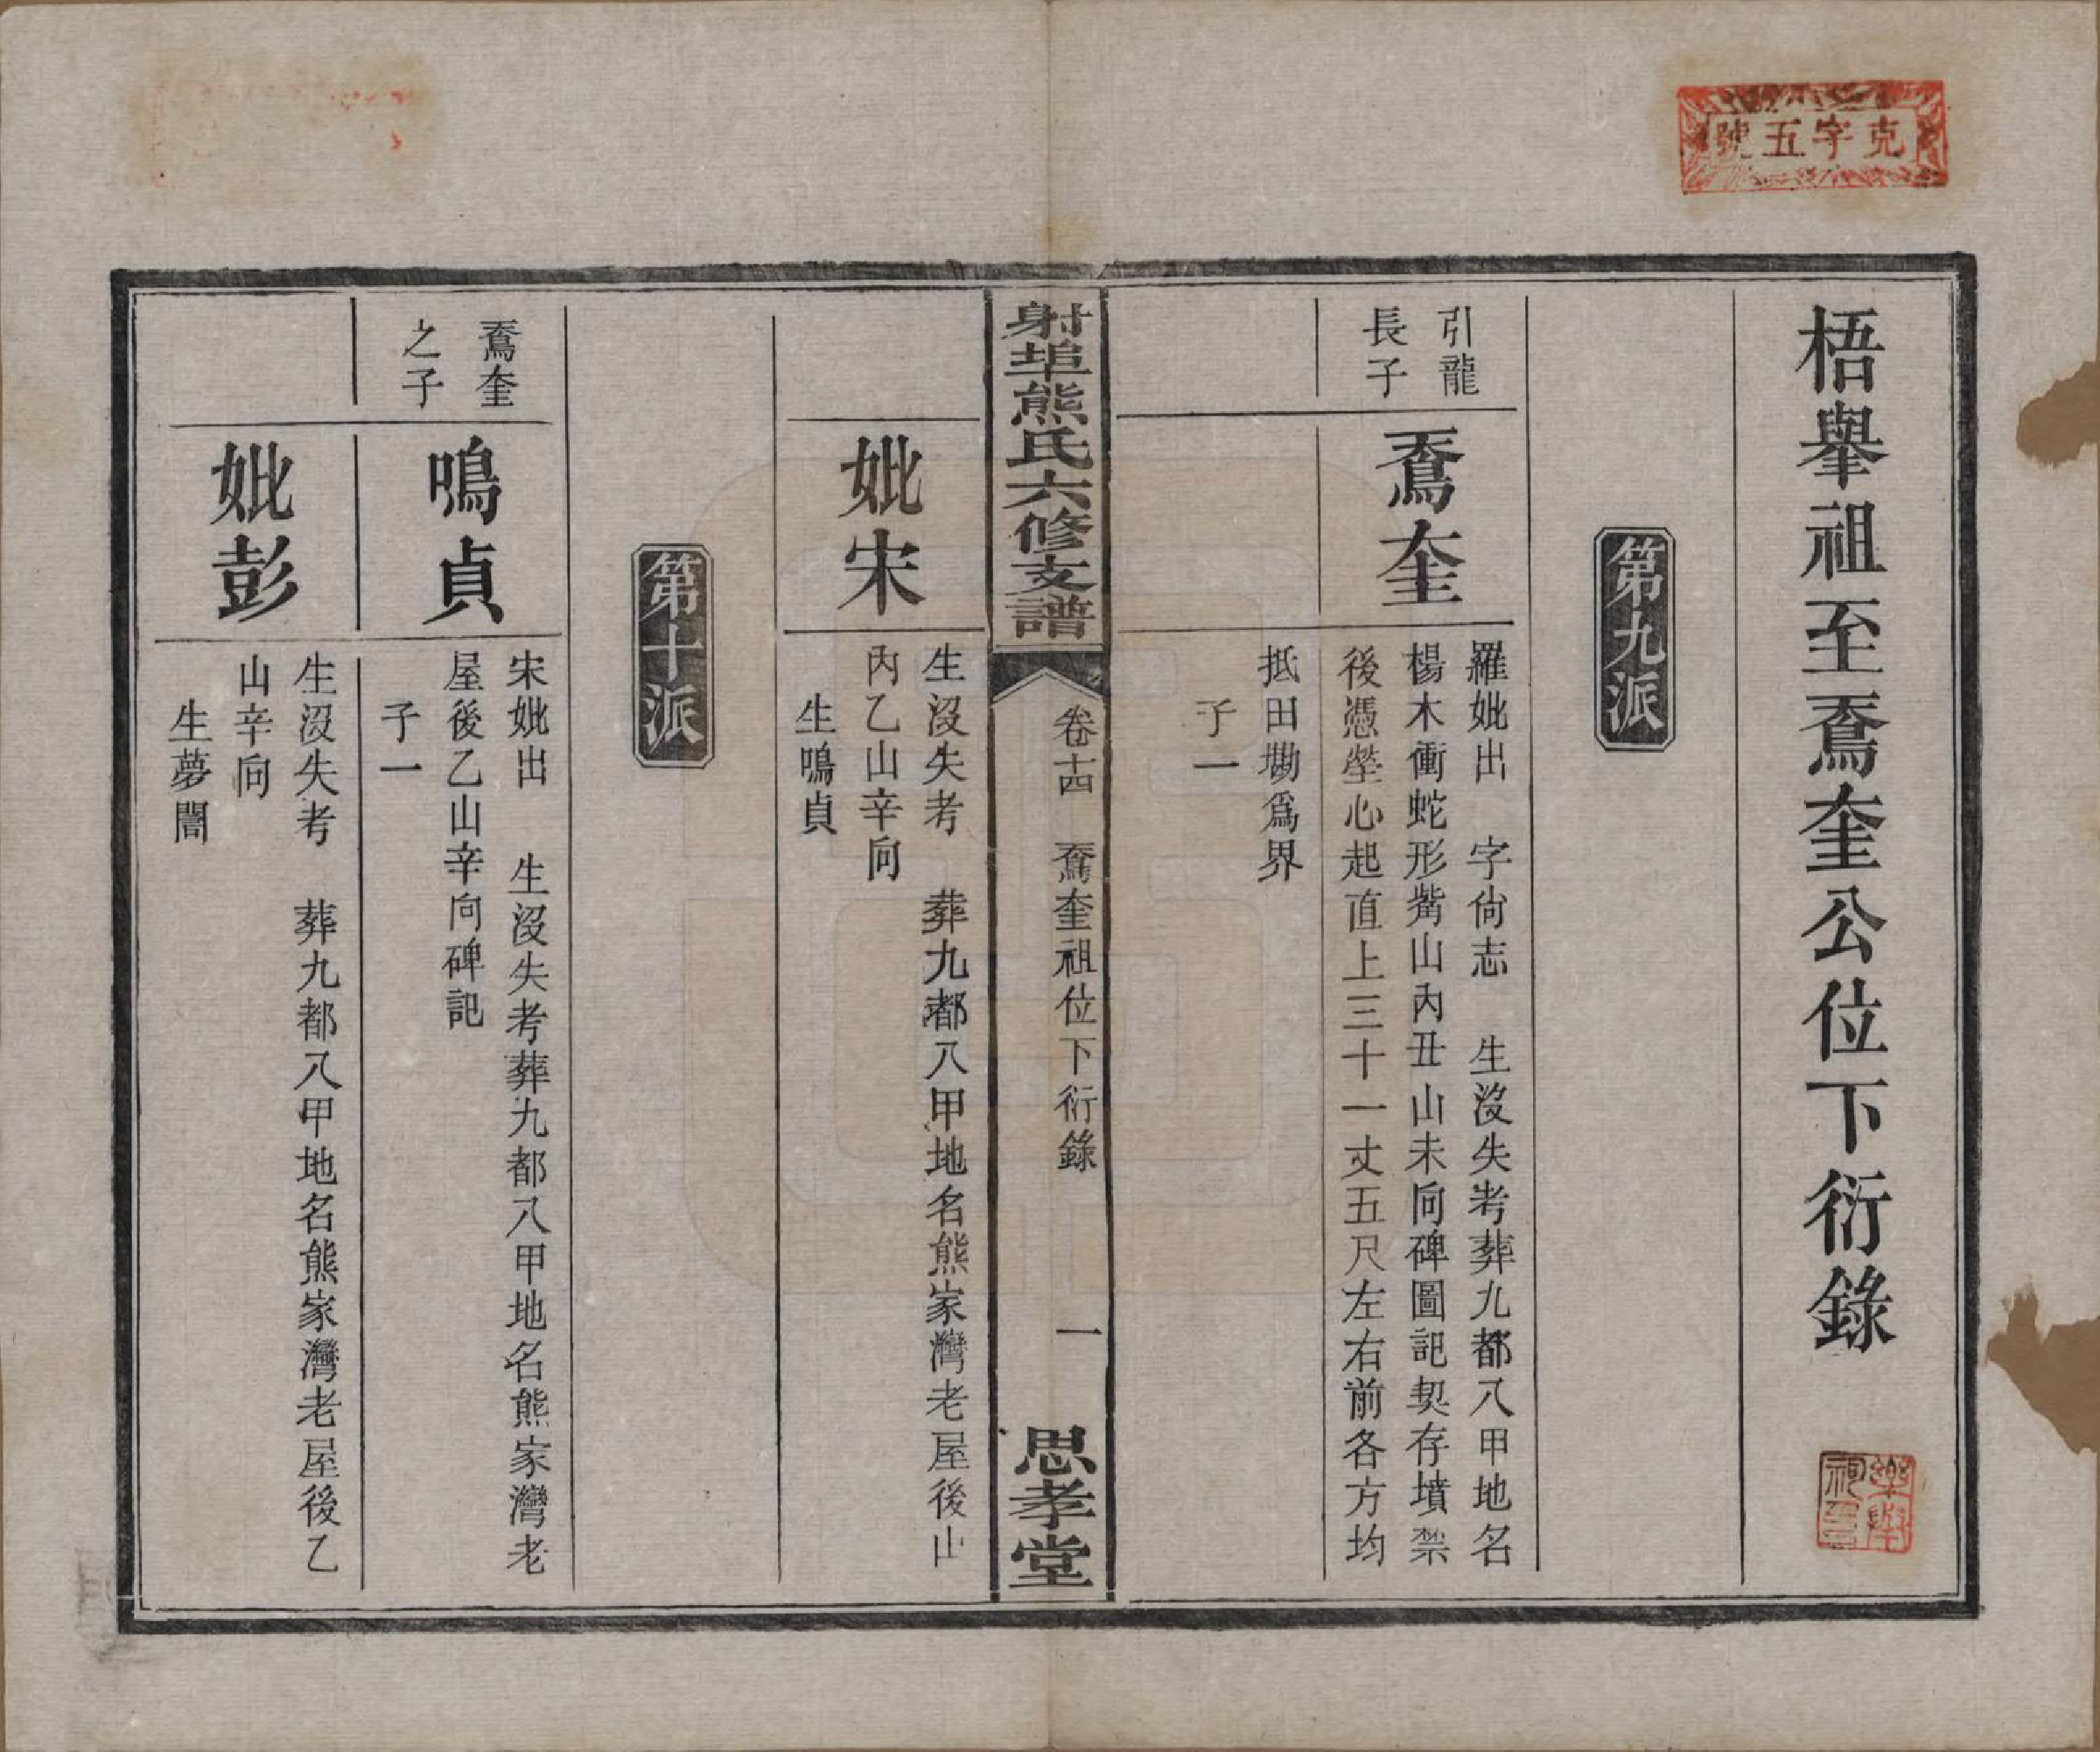 克字五號
梧舉祖至鴌奎公位下衍錄
第九派
引龍
長子
鴌奎
羅妣出　字尙志　生沒失考葬九都八甲地名
楊木衝蛇形觜山內丑山未向碑圖記契存墳禁
後憑塋心起直上三十一丈五尺左右前各方均
抵田墈爲界
子一
射埠熊氏六修支譜
卷十四　鴌奎祖位下衍錄　一
思孝堂
妣宋
生沒失考　葬九都八甲地名熊家灣老屋後山
內乙山辛向
生鳴貞
第十派
鴌奎
之子
鳴貞
宋妣出　生沒失考葬九都八甲地名熊家灣老
屋後乙山辛向碑記
子一
妣彭
生沒失考　葬九都八甲地名熊家灣老屋後乙
山辛向
生夢闇